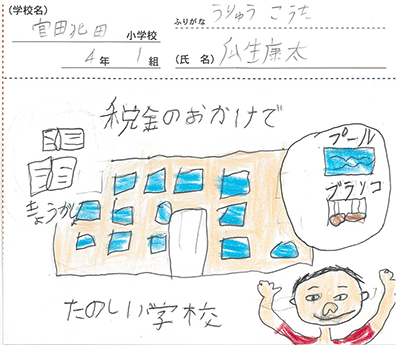 (学校名)
小学校
4年 1組
ふりがな
うりゅう こうた
(氏 名) 瓜生康太
税金のおかけで
プール
ブランコ
きょうかしょ
たのしい学校